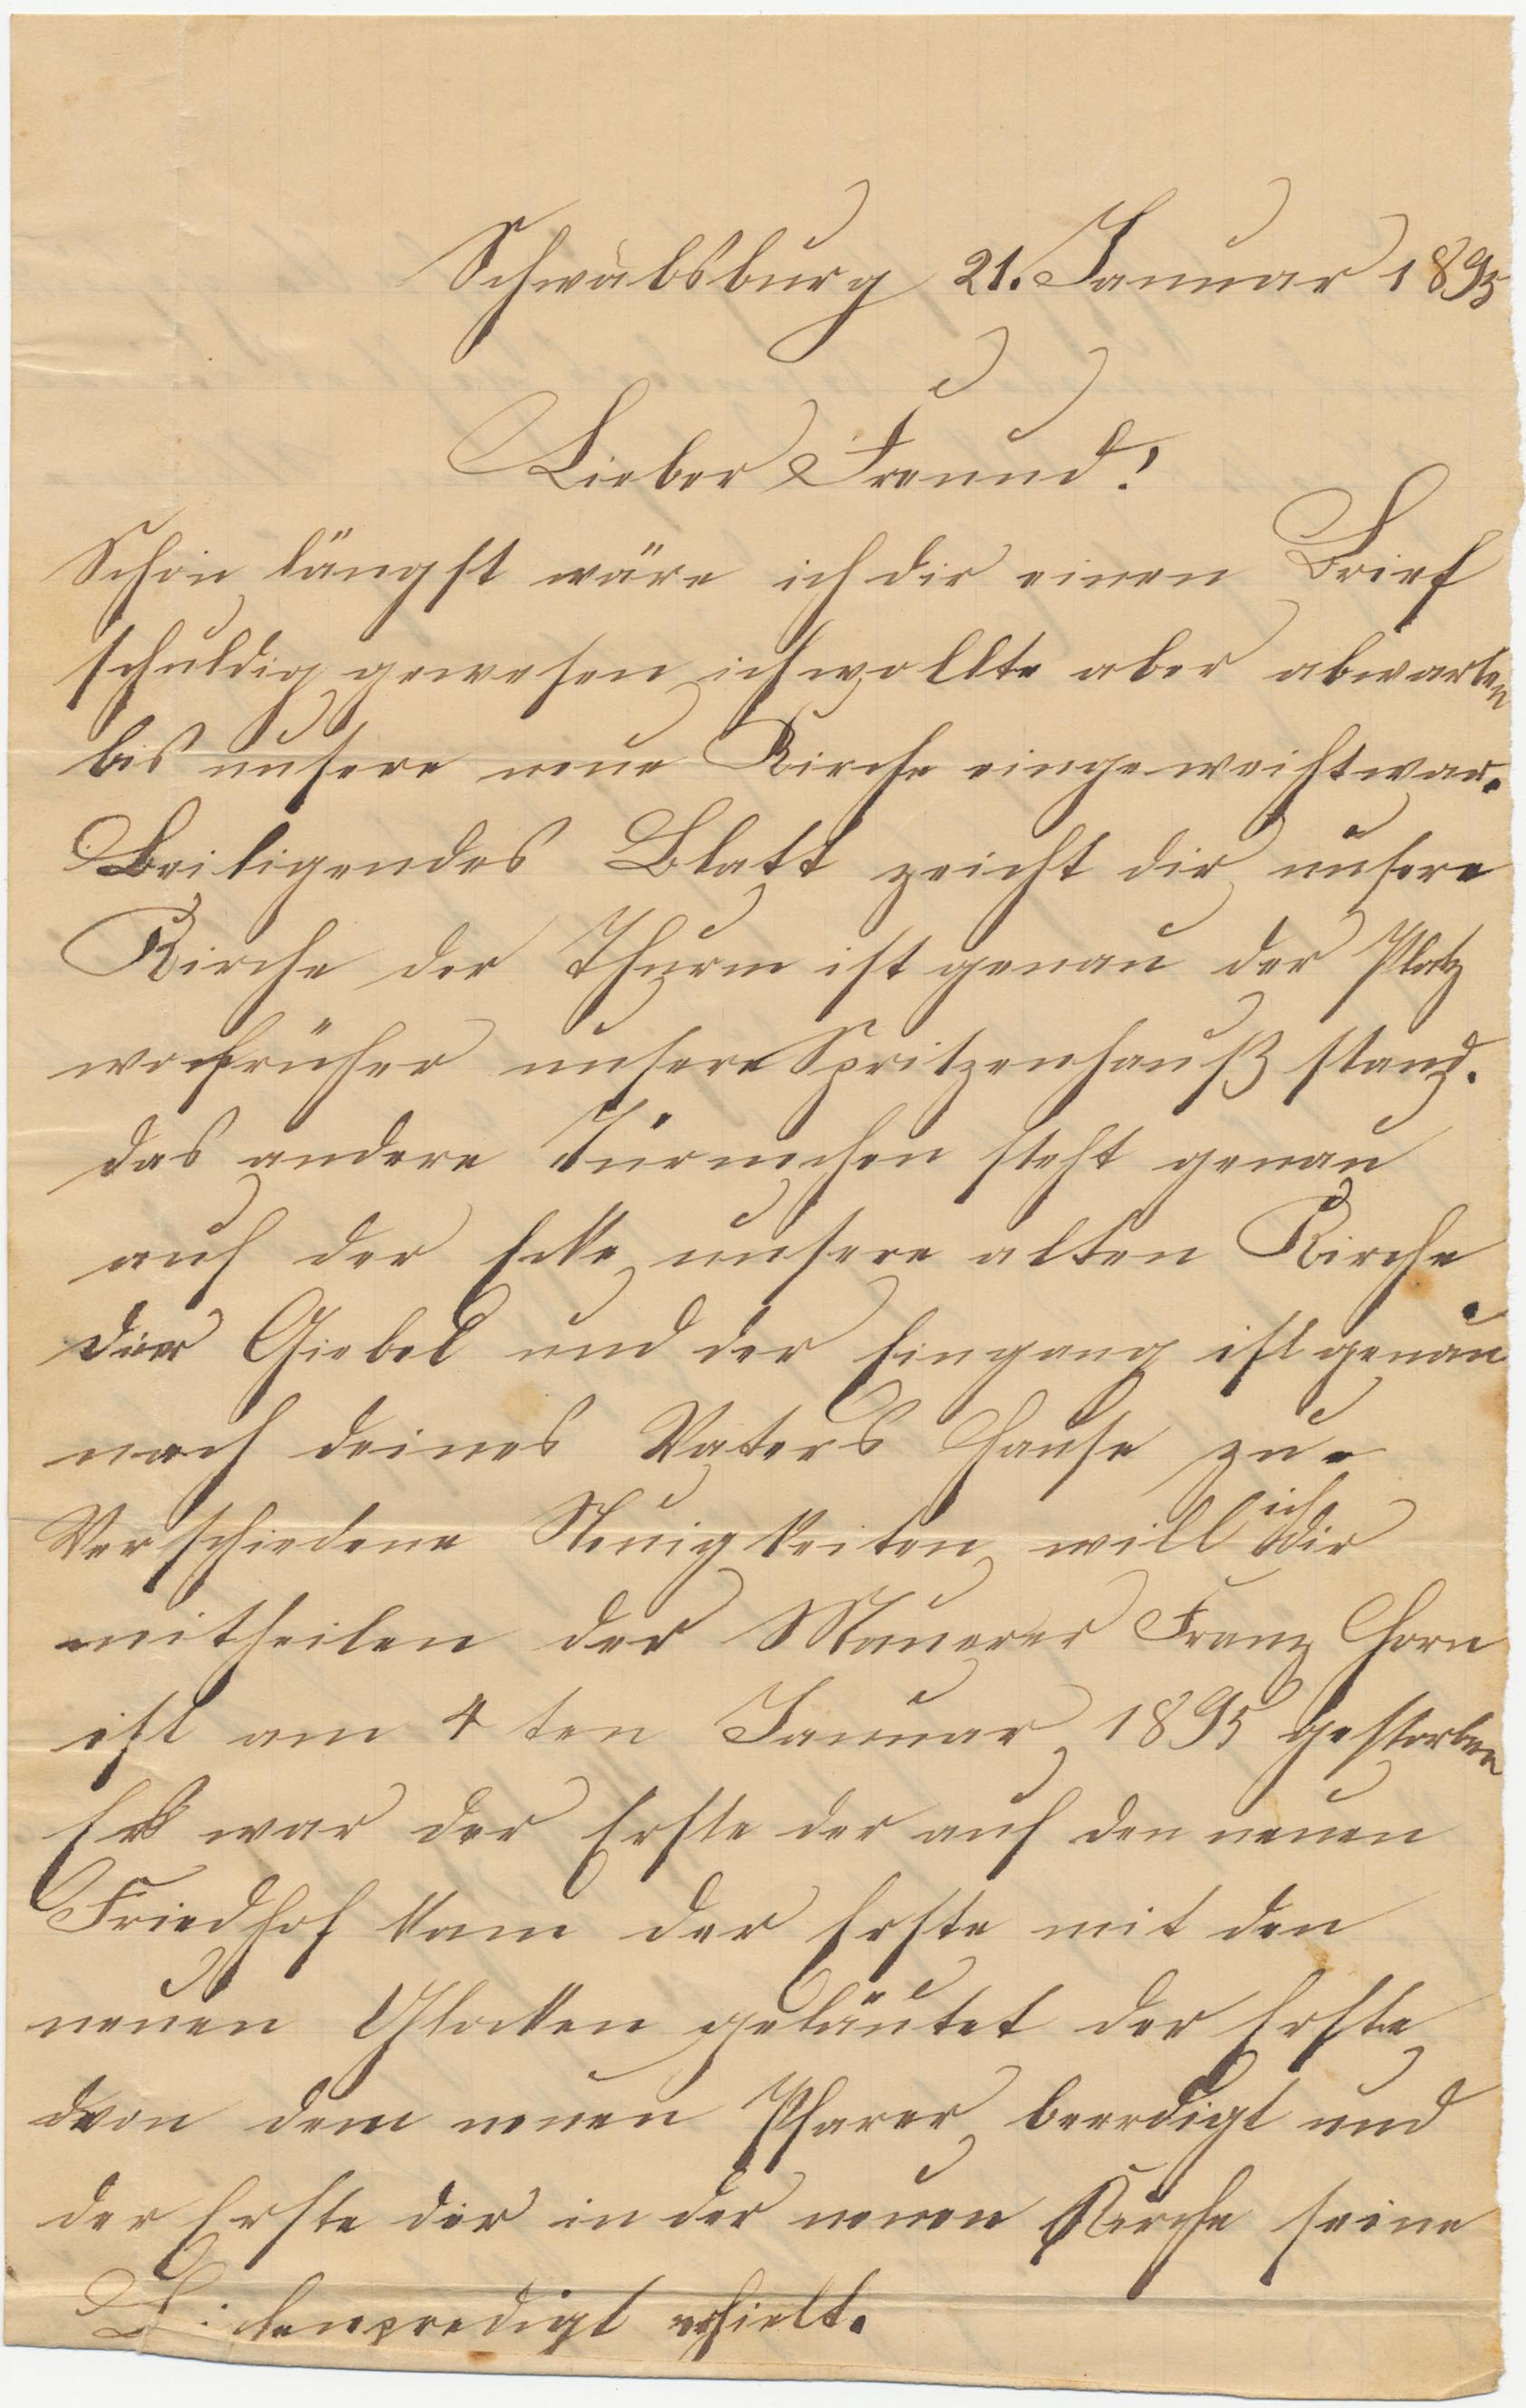 Schwabsburg 21. Januar 1895
Lieber Freund!
Schon längst wäre ich dir einen Brief
schuldig gewesen ich wollte aber abwarten
bis unsere neue Kirche eingeweiht war.
Beiligendes Blatt zeicht dir unsere
Kirche der Thurm ist genau der Platz
wo früher unsere Spritzenhauß stand.
das andere Türmchen steht genau
auf der Ecke unsere alten Kirche
der Giebel und der Eingang ist genau
nach deines Vaters Hause zu.
Verschiedene Neuigkeiten will ich dir
mittheilen der Mauerer Franz Horn
ist am 4 ten Januar 1895 gestorben
Er war der Erste der auf den neuen
Friedhof kam der Erste mit den
neuen Glocken geläutet der Erste
von dem neuen Pfarer beerdigt und
der Erste der in der neuen Kirche seine
erhielt.